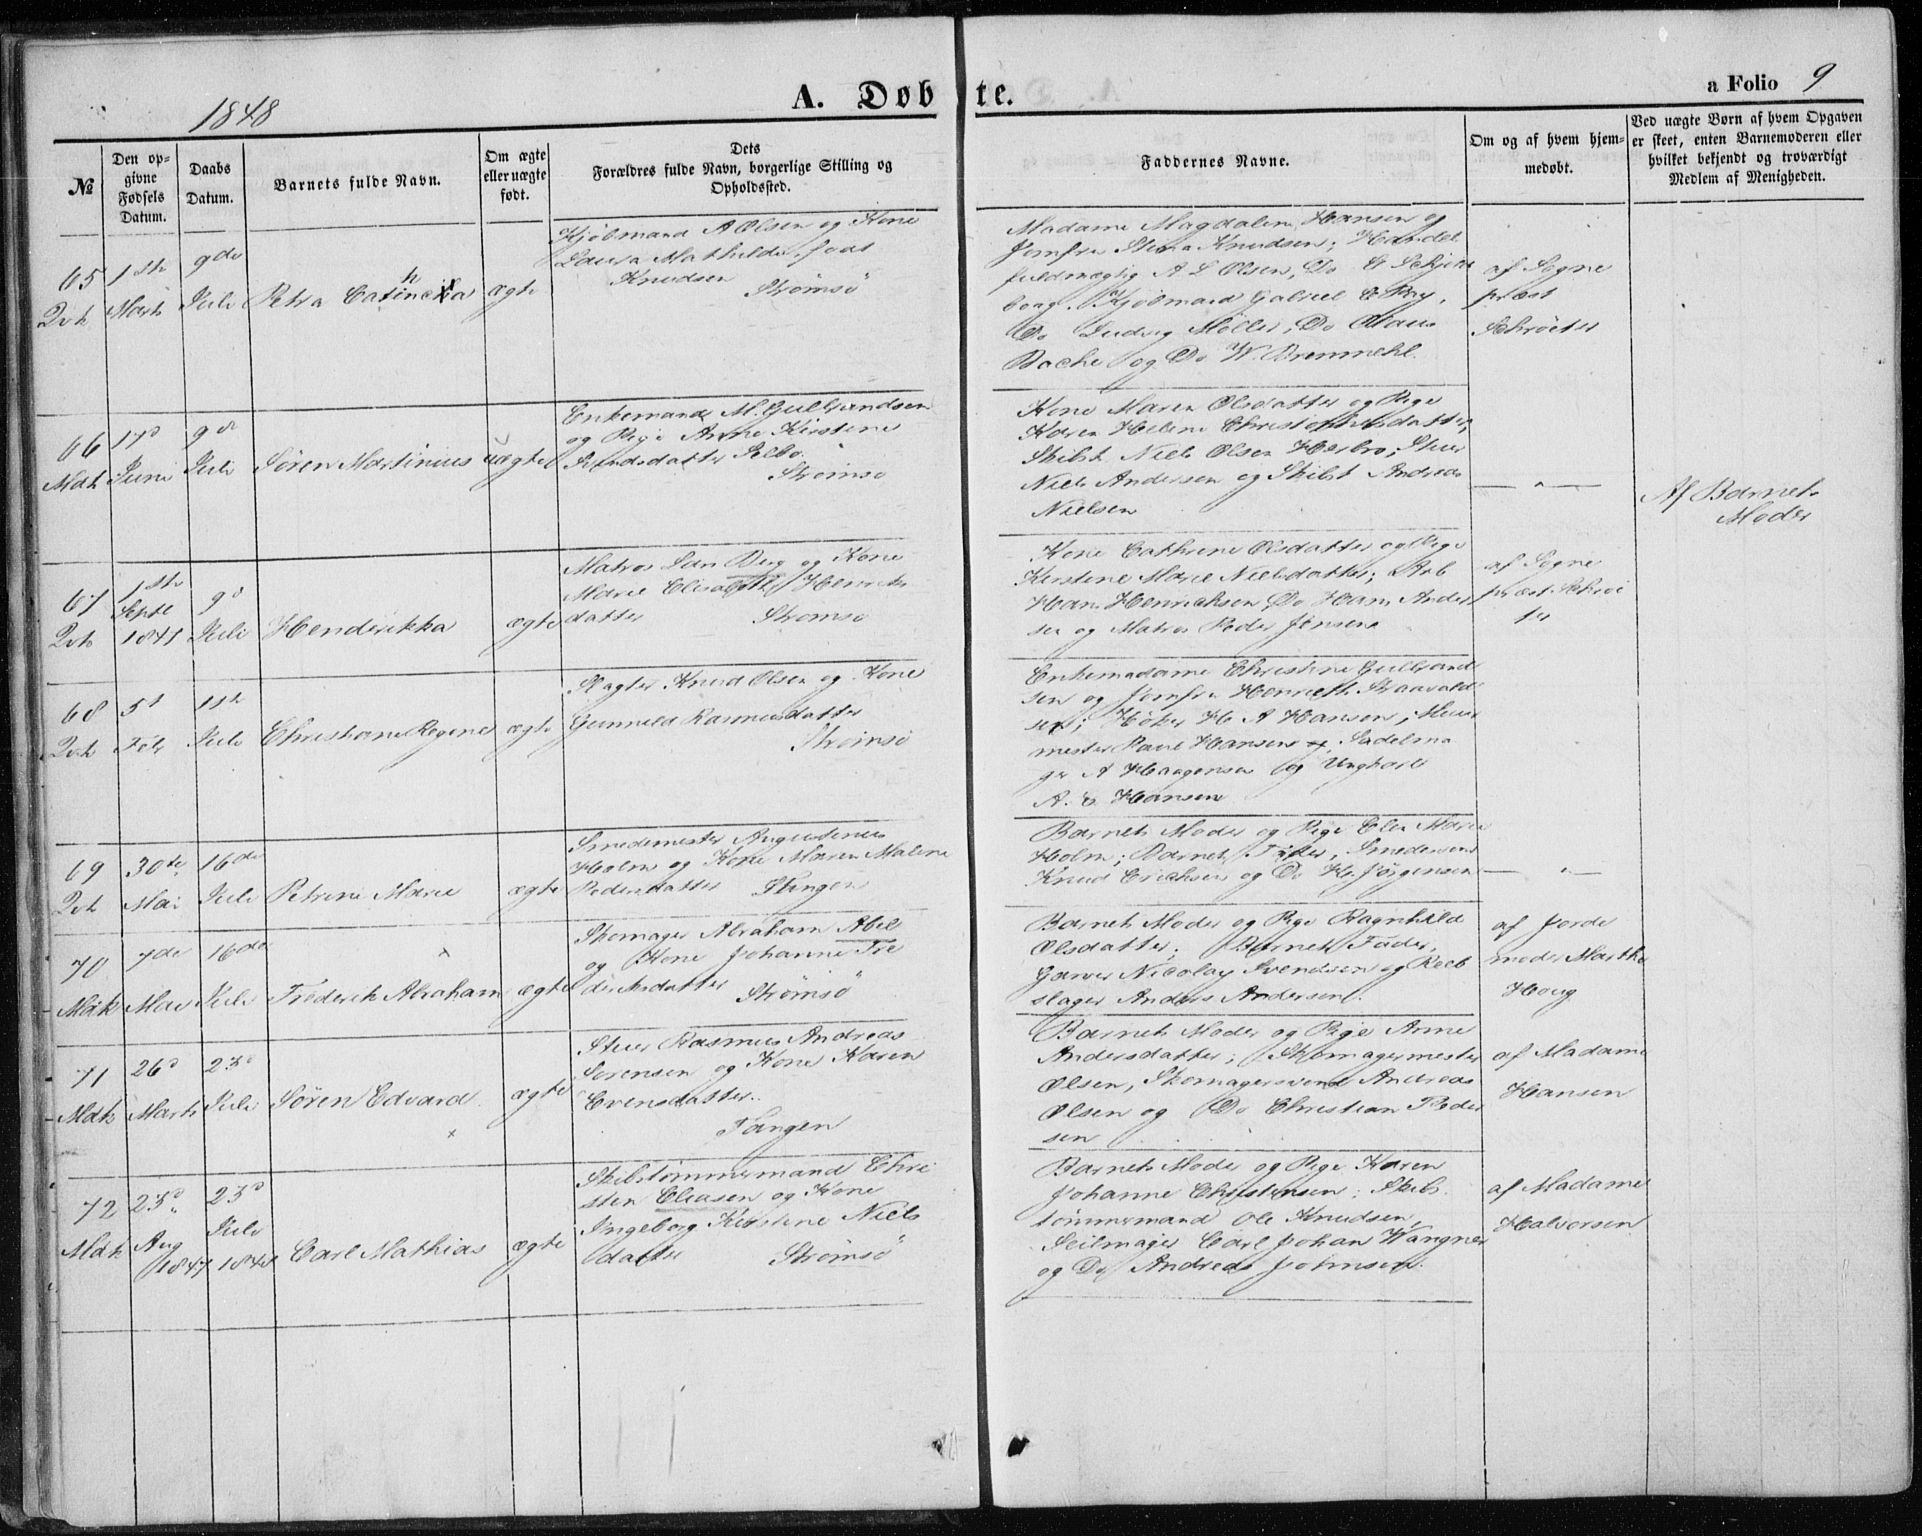 1848
A. Døbte.
a Folio 9
№
Den opgivne Fødsels Datum.
Daabs Datum.
Barnets fulde Navn.
Om ægte eller uægte født.
Dets Forældres fulde Navn, borgerlige Stilling og Opholdssted.
Faddernes Navne.
Om og af hvem hjemmedøbt.
Ved uægte Børn af hvem Opgaven er skeet, enten Barnemoderen eller hvilket bekjendt og troværdigt Medlem af Menigheden.
65
1ste
9de
Marts
Juli
Petra Cathinka
ægte
Kjøbmand A Olsen og Kone
Laura Mathilde, født
Knudsen
Strømsö
Madame Magdalene Hansen og
Jomfru Stina Knudsen; Handels
fuldmægtig A L Olsen, Do
borg. Kjøbmand Gabriel
Do Ludvig Møller, Do Olaus
Bache og Do W. Bremmehl.
af Sogne
præst
Schröeter
66
17d
9de
Mdk
Juni
Juli
Sören Martinius
uægte
Enkemand M. Gulbrandsen
og Pige Anne Kirstine
Strømsö
Kone Maren Olsdatter og Pige
Karen Helene Christophersdatter,
Skibst Niels Olsen Hesbro; Stuer
Niels Andersen og Skibst Andreas
Nielsen
— " —
Af Barnets
Moder
67
1ste
Septb
9d
1841
Juli
Henderikka
ægte
Matros Lars Berg og Kone
Marie Elisabeth Henriks
datter
Strømsö
Kone Cathrine Olsdatter og Pige
Kirstine Marie Nielsdatter; Arb
Hans Henrichsen Do Hans Ander
sen og Matros Peder Jensen
af Sogne
præst Schröe
ter
68
5t
Feb
Juli
Christiane Regine
ægte
Slagter Knud Olsen og Kone
Gunnild Rasmusdatter
Strømsö
Enkemadame Christine Gulbrand
sen og Jomfru Henriette Straavald
sen; Höker H A Hansen; Muur
mester Paul Hansen, Sadelma
ger A Haagensen og Ungkarl
A. C Hansen
69
30te
16de
Mai
Juli
Petrine Marie
ægte
Smedemester Augustinus
Holm og Kone Maren Malene
Pedersdatter
Tangen
Barnets Moder og Pige Elen Marie
Holm; Barnets Fader, Smedesvend
Knud Erichsen og Do H. Jørgensen
— " —
70
7de
16de
Mdk
Mai
Juli
Frederik Abraham
ægte
Skomager Abraham Abel
og Kone Johanne Fre
deriksdatter
Strømsö
Barnets Moder og Pige Ragnhild
Olsdatter; Barnets Fader,
Garver Nicolay Svendsen og Reeb
slager Anders Andersen.
af Jorde
moder Marthe
Houg
71
26d
23d
Mdk
Marts
Juli
Sören Edvard
ægte
Stuer Rasmus Andreas
Sörensen og Kone Karen
Evensdatter.
Tangen
Barnets Moder og Pige Anne
Andersdatter; Skomagermester
Olsen, Skomagersvend Andreas
Olsen og Do Christian Peder
sen
af Madame
Hansen
72
23d
23d
Mdk
Aug
1847
Juli
1848
Carl Mathias
ægte
Skibstömmermand Chri
sten Eliasen og Kone
Ingeborg Kirstine Niels
datter
Strømsö
Barnets Moder og Pige Karen
Johanne Christensen; Skibs
tömmermand Ole Knudsen,
Seilmager Carl Johan Wangner
og Do Andreas Johnsen.
af Madame
Halvorsen